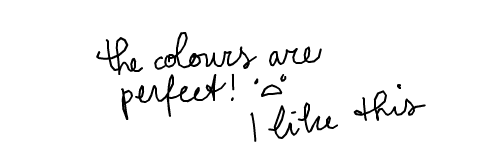 the colours are
perfect!
I like this